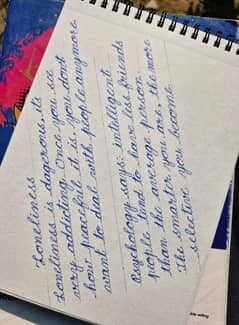 Loneliness
Loneliness is dagerous its
very addicting once you see
how peacefull it is, you dont
want to deal with people anymore.
Psychology says: intelligent
people tend to have less friends
than the average person.
The smarter you are, the more
selective you become.